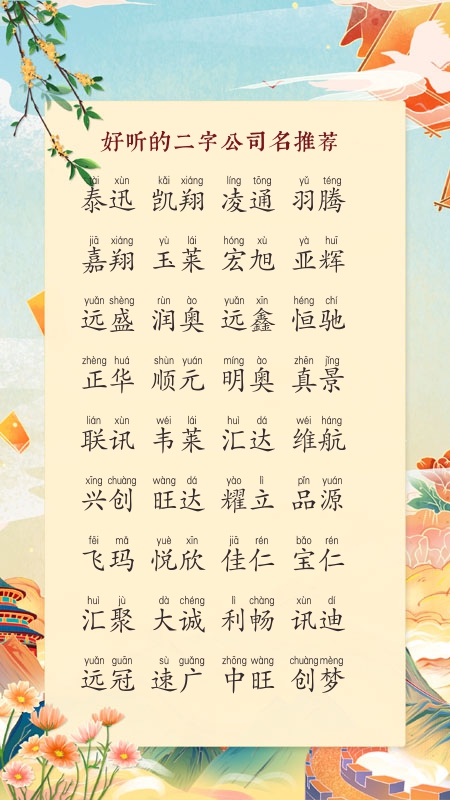 好听的二字公司名推荐
tài xùn kǎi xiáng líng tōng yǔ téng
泰迅 凯翔 凌通 羽腾
jiā xiáng yù lái hóng xù yà huī
嘉翔 玉莱 宏旭 亚辉
yuǎn shèng rùn ào yuǎn xīn héng chí
远盛 润奥 远鑫 恒驰
zhèng huá shùn yuán míng ào zhēn jǐng
正华 顺元 明奥 真景
lián xùn wéi lái huì dá wéi háng
联讯 韦莱 汇达 维航
xīng chuàng wàng dá yào lì pǐn yuán
兴创 旺达 耀立 品源
fēi mǎ yuè xīn jiā rén bǎo rén
飞玛 悦欣 佳仁 宝仁
huì jù dà chéng lì chàng xùn dí
汇聚 大诚 利畅 讯迪
yuǎn guān sù guǎng zhōng wàng chuàng mèng
远冠 速广 中旺 创梦